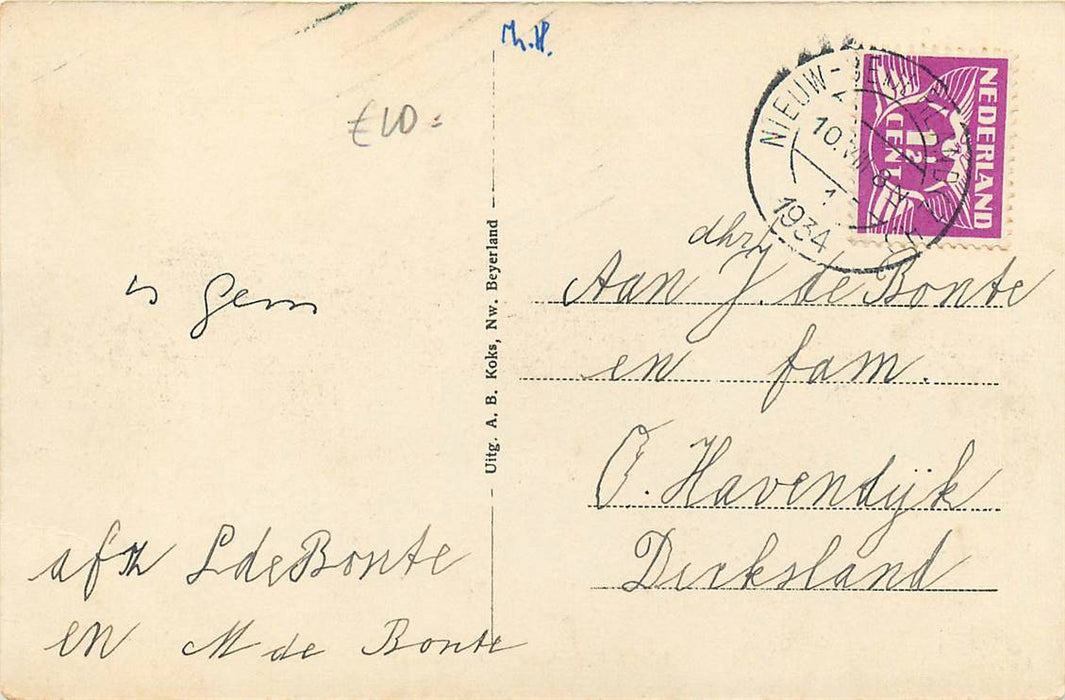 €10=
NIEUW-BEIJERLAND
10.VIII 8 V
1
1934
NEDERLAND
1½
CENT
Uitg. A. B. Koks, Nw. Beyerland
dhr
Aan J. de Bonte
en fam.
O. Havendijk
Dirksland
afz L de Bonte
en M de Bonte